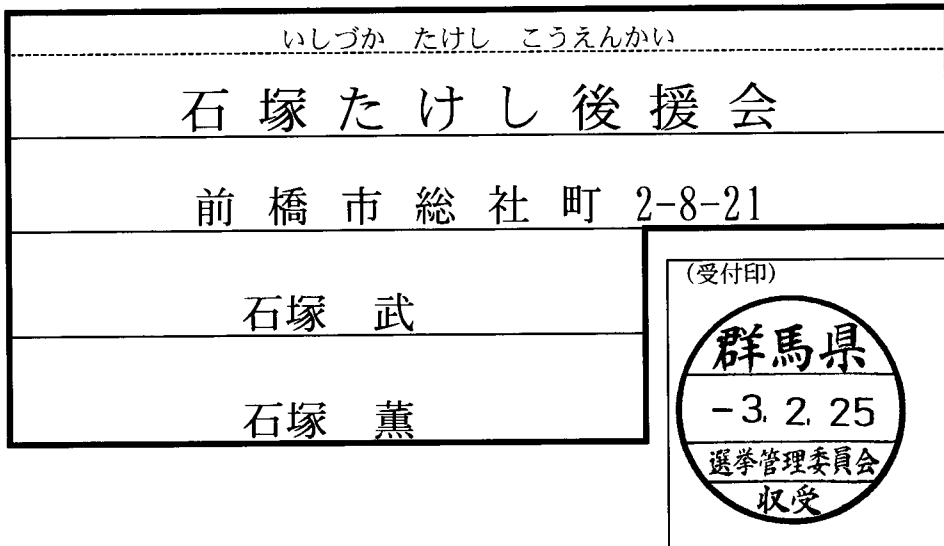 いしづか たけし こうえんかい
石塚たけし後援会
前橋市総社町 2-8-21
石塚 武
石塚 薫
(受付印)
群馬県
-3. 2. 25
選挙管理委員会
収受